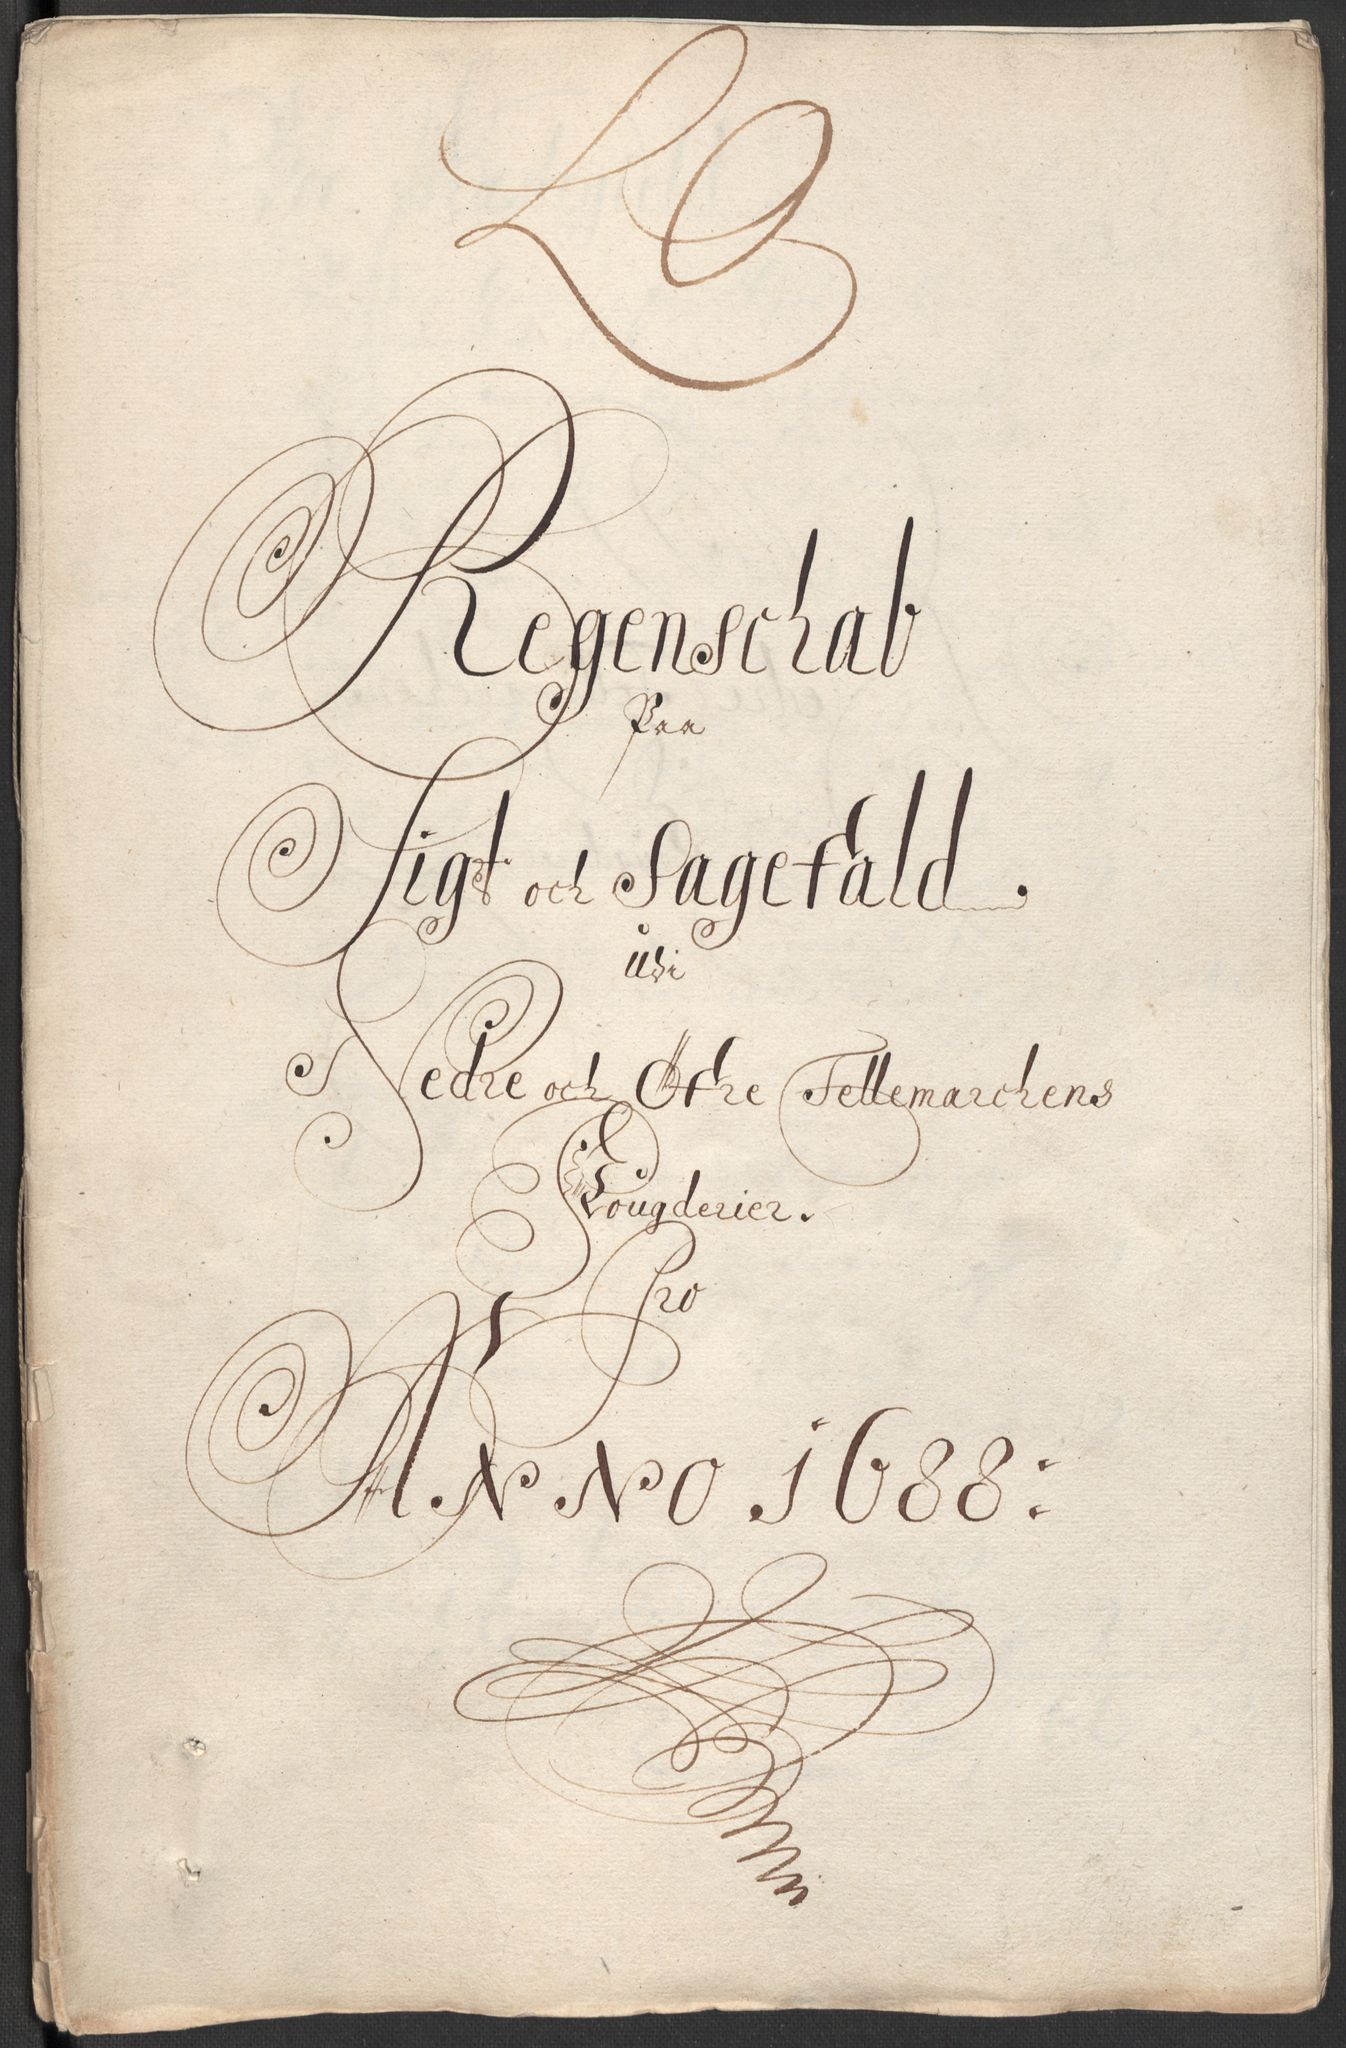 Regenschab
Paa
Sigt och Sagefald.
udi
Nedre och Öfre Tellemarchens
Fougderier.
Pro
ANNO 1688: